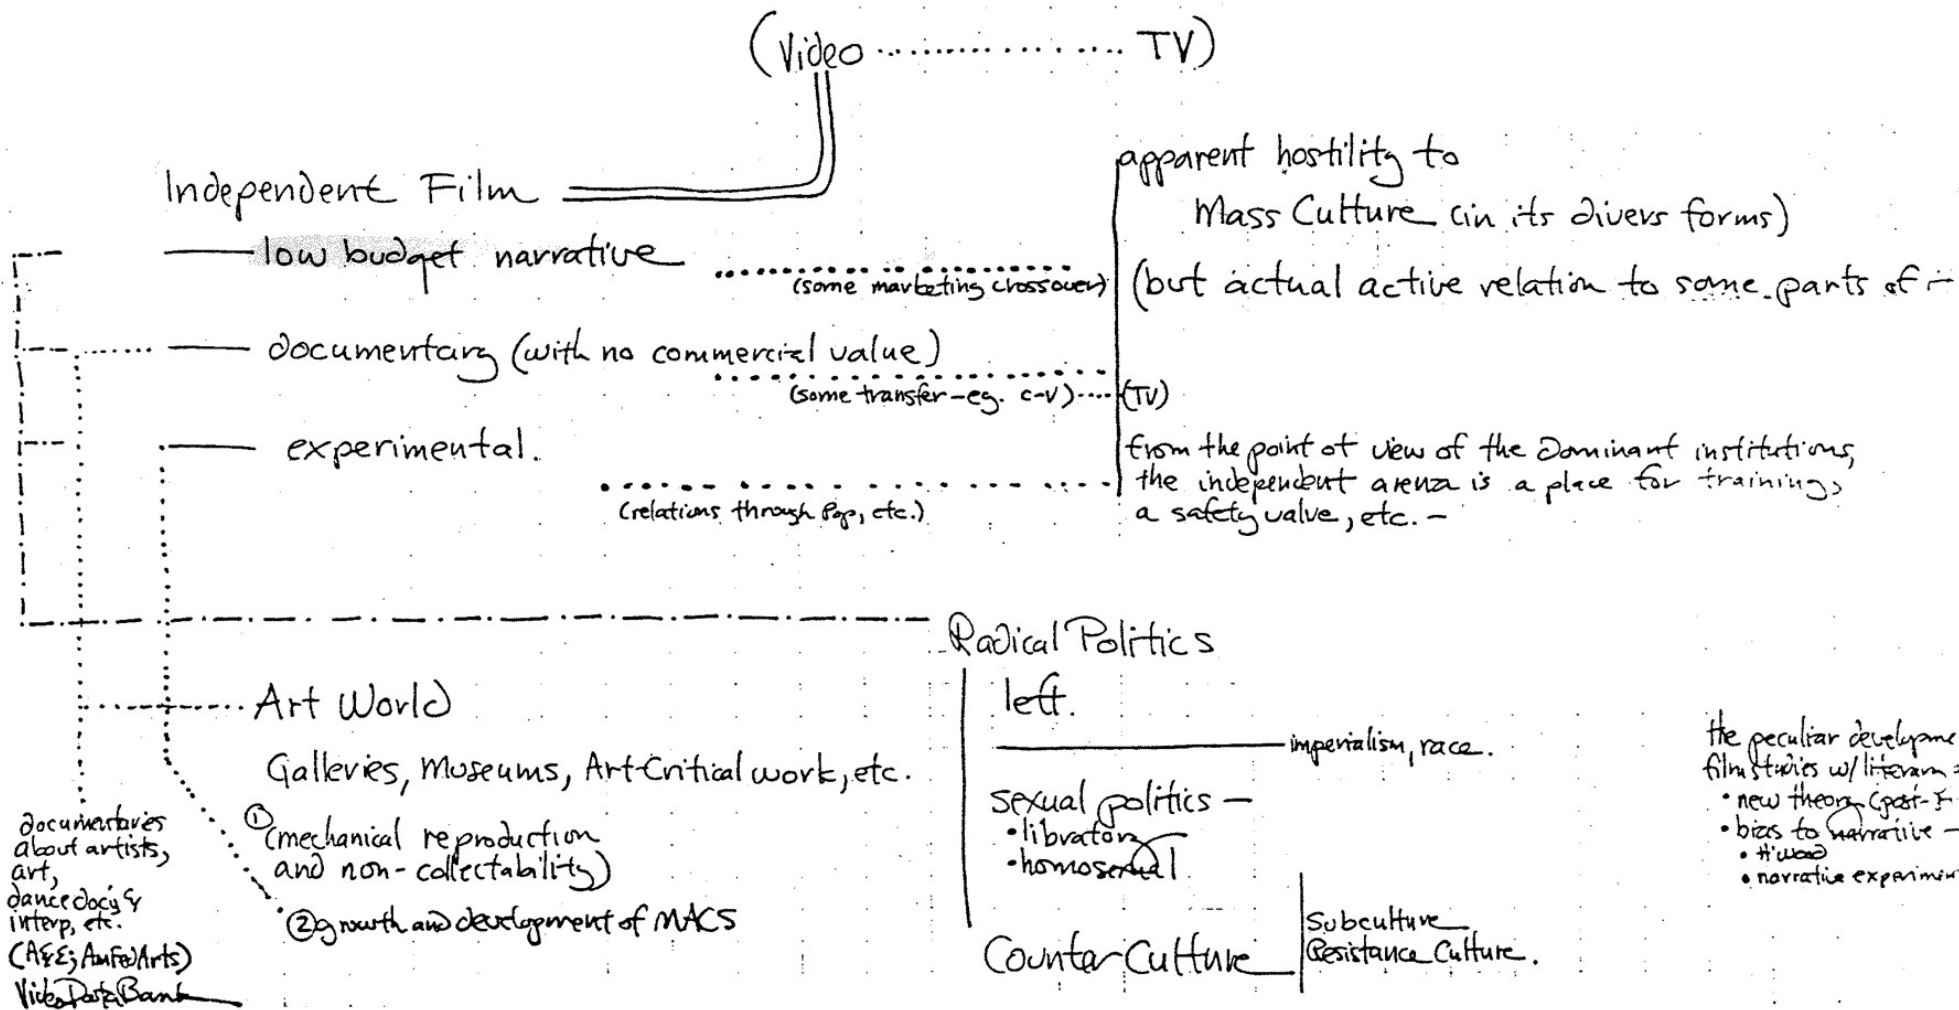 (Video ................ TV)
Independent Film
low budget narrative
(some marketing crossover)
documentary (with no commercial value)
(some transfer-eg. c-V)....(TV)
experimental.
(relations through Pop, etc.)
apparent hostility to
Mass Culture (in its divers forms)
(but actual active relation to some parts of
from the point of view of the Dominant institutions,
the independent arena is a place for training,
a safety valve, etc. -
Radical Politics
left.
imperialism, race.
sexual politics —
• libratory
• homosexual
Counter Culture
Subculture
Resistance Culture.
Art World
Galleries, Museums, Art-Critical work, etc.
① (mechanical reproduction
and non-collectability)
② growth and development of MACS
documentaries
about artists,
art,
dance docs &
interp, etc.
(A&E; AmFedArts)
Video Data Bank
the peculiar developme
film studies w/ literary
• new theory (post-
• bias to narrative —
• H'wood
• narrative experimen